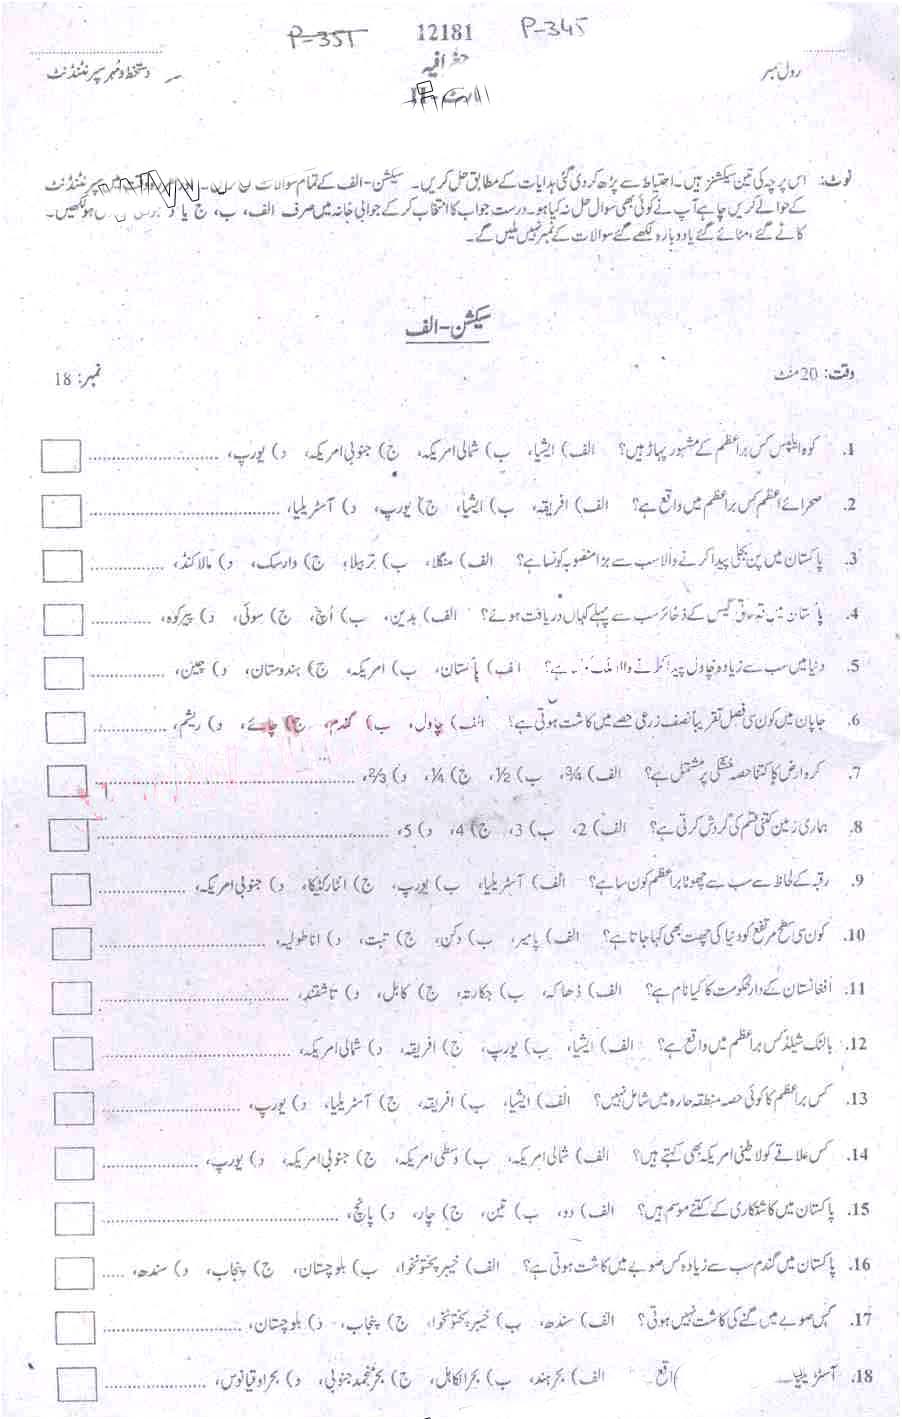 P-351 12181 P-345
رول نمبر جغرافیہ دستخط و مہر سپرنٹنڈنٹ
نوٹ: اس پرچہ کی تین سیکشنز ہیں۔ احتیاط سے پڑھ کر دی گئی ہدایات کے مطابق حل کریں۔ سیکشن-الف کے تمام سوالات سپرنٹنڈنٹ
کے حوالے کریں چاہے آپ نے کوئی بھی سوال حل نہ کیا ہو۔ درست جواب کا انتخاب کر کے جوابی خانہ میں صرف الف، ب، ج یا د لکھیں۔
کاٹے گئے، مٹائے گئے یا دوبارہ لکھے گئے سوالات کے نمبر نہیں ملیں گے۔
سیکشن-الف
وقت: 20 منٹ نمبر: 18
1. کوہ اطلس کس براعظم کے مشہور پہاڑ ہیں؟ الف) ایشیا، ب) شمالی امریکہ، ج) جنوبی امریکہ، د) یورپ،
2. صحرائے اعظم کس براعظم میں واقع ہے؟ الف) افریقہ، ب) ایشیا، ج) یورپ، د) آسٹریلیا،
3. پاکستان میں پن بجلی پیدا کرنے والا سب سے بڑا منصوبہ کونسا ہے؟ الف) منگلا، ب) تربیلا، ج) وارسک، د) مالاکنڈ،
4. پاکستان میں قدرتی گیس کے ذخائر سب سے پہلے کہاں دریافت ہوئے؟ الف) بدین، ب) اُچ، ج) سوئی، د) پیرکوہ،
5. دنیا میں سب سے زیادہ چاول پیدا کرنے والا ملک ہے؟ الف) پاکستان، ب) امریکہ، ج) ہندوستان، د) چین،
6. جاپان میں کون سی فصل تقریباً نصف زرعی حصے میں کاشت ہوتی ہے؟ الف) چاول، ب) گندم، ج) چائے، د) ریشم،
7. کرہ ارض کا کتنا حصہ خشکی پر مشتمل ہے؟ الف) 3/4، ب) 1/2، ج) 1/4، د) 2/3،
8. ہماری زمین کتنی قسم کی گردش کرتی ہے؟ الف) 2، ب) 3، ج) 4، د) 5،
9. رقبہ کے لحاظ سے سب سے چھوٹا براعظم کون سا ہے؟ الف) آسٹریلیا، ب) یورپ، ج) انٹارکٹیکا، د) جنوبی امریکہ،
10. کون سی سطح مرتفع کو دنیا کی چھت بھی کہا جاتا ہے؟ الف) پامیر، ب) دکن، ج) تبت، د) اناطولیہ،
11. افغانستان کے دارالحکومت کا کیا نام ہے؟ الف) ڈھاکہ، ب) جکارتہ، ج) کابل، د) تاشقند،
12. بالٹک شیلڈ کس براعظم میں واقع ہے؟ الف) ایشیا، ب) یورپ، ج) افریقہ، د) شمالی امریکہ،
13. کس براعظم کا کوئی حصہ منطقہ حارہ میں شامل نہیں؟ الف) ایشیا، ب) افریقہ، ج) آسٹریلیا، د) یورپ،
14. کس علاقے کو لاطینی امریکہ بھی کہتے ہیں؟ الف) شمالی امریکہ، ب) وسطی امریکہ، ج) جنوبی امریکہ، د) یورپ،
15. پاکستان میں کاشتکاری کے کتنے موسم ہیں؟ الف) دو، ب) تین، ج) چار، د) پانچ،
16. پاکستان میں گندم سب سے زیادہ کس صوبے میں کاشت ہوتی ہے؟ الف) خیبر پختونخوا، ب) بلوچستان، ج) پنجاب، د) سندھ،
17. کس صوبے میں گنے کی کاشت نہیں ہوتی؟ الف) سندھ، ب) خیبر پختونخوا، ج) پنجاب، د) بلوچستان،
18. آسٹریلیا واقع الف) بحر ہند، ب) بحر الکاہل، ج) بحر منجمد جنوبی، د) بحر اوقیانوس،